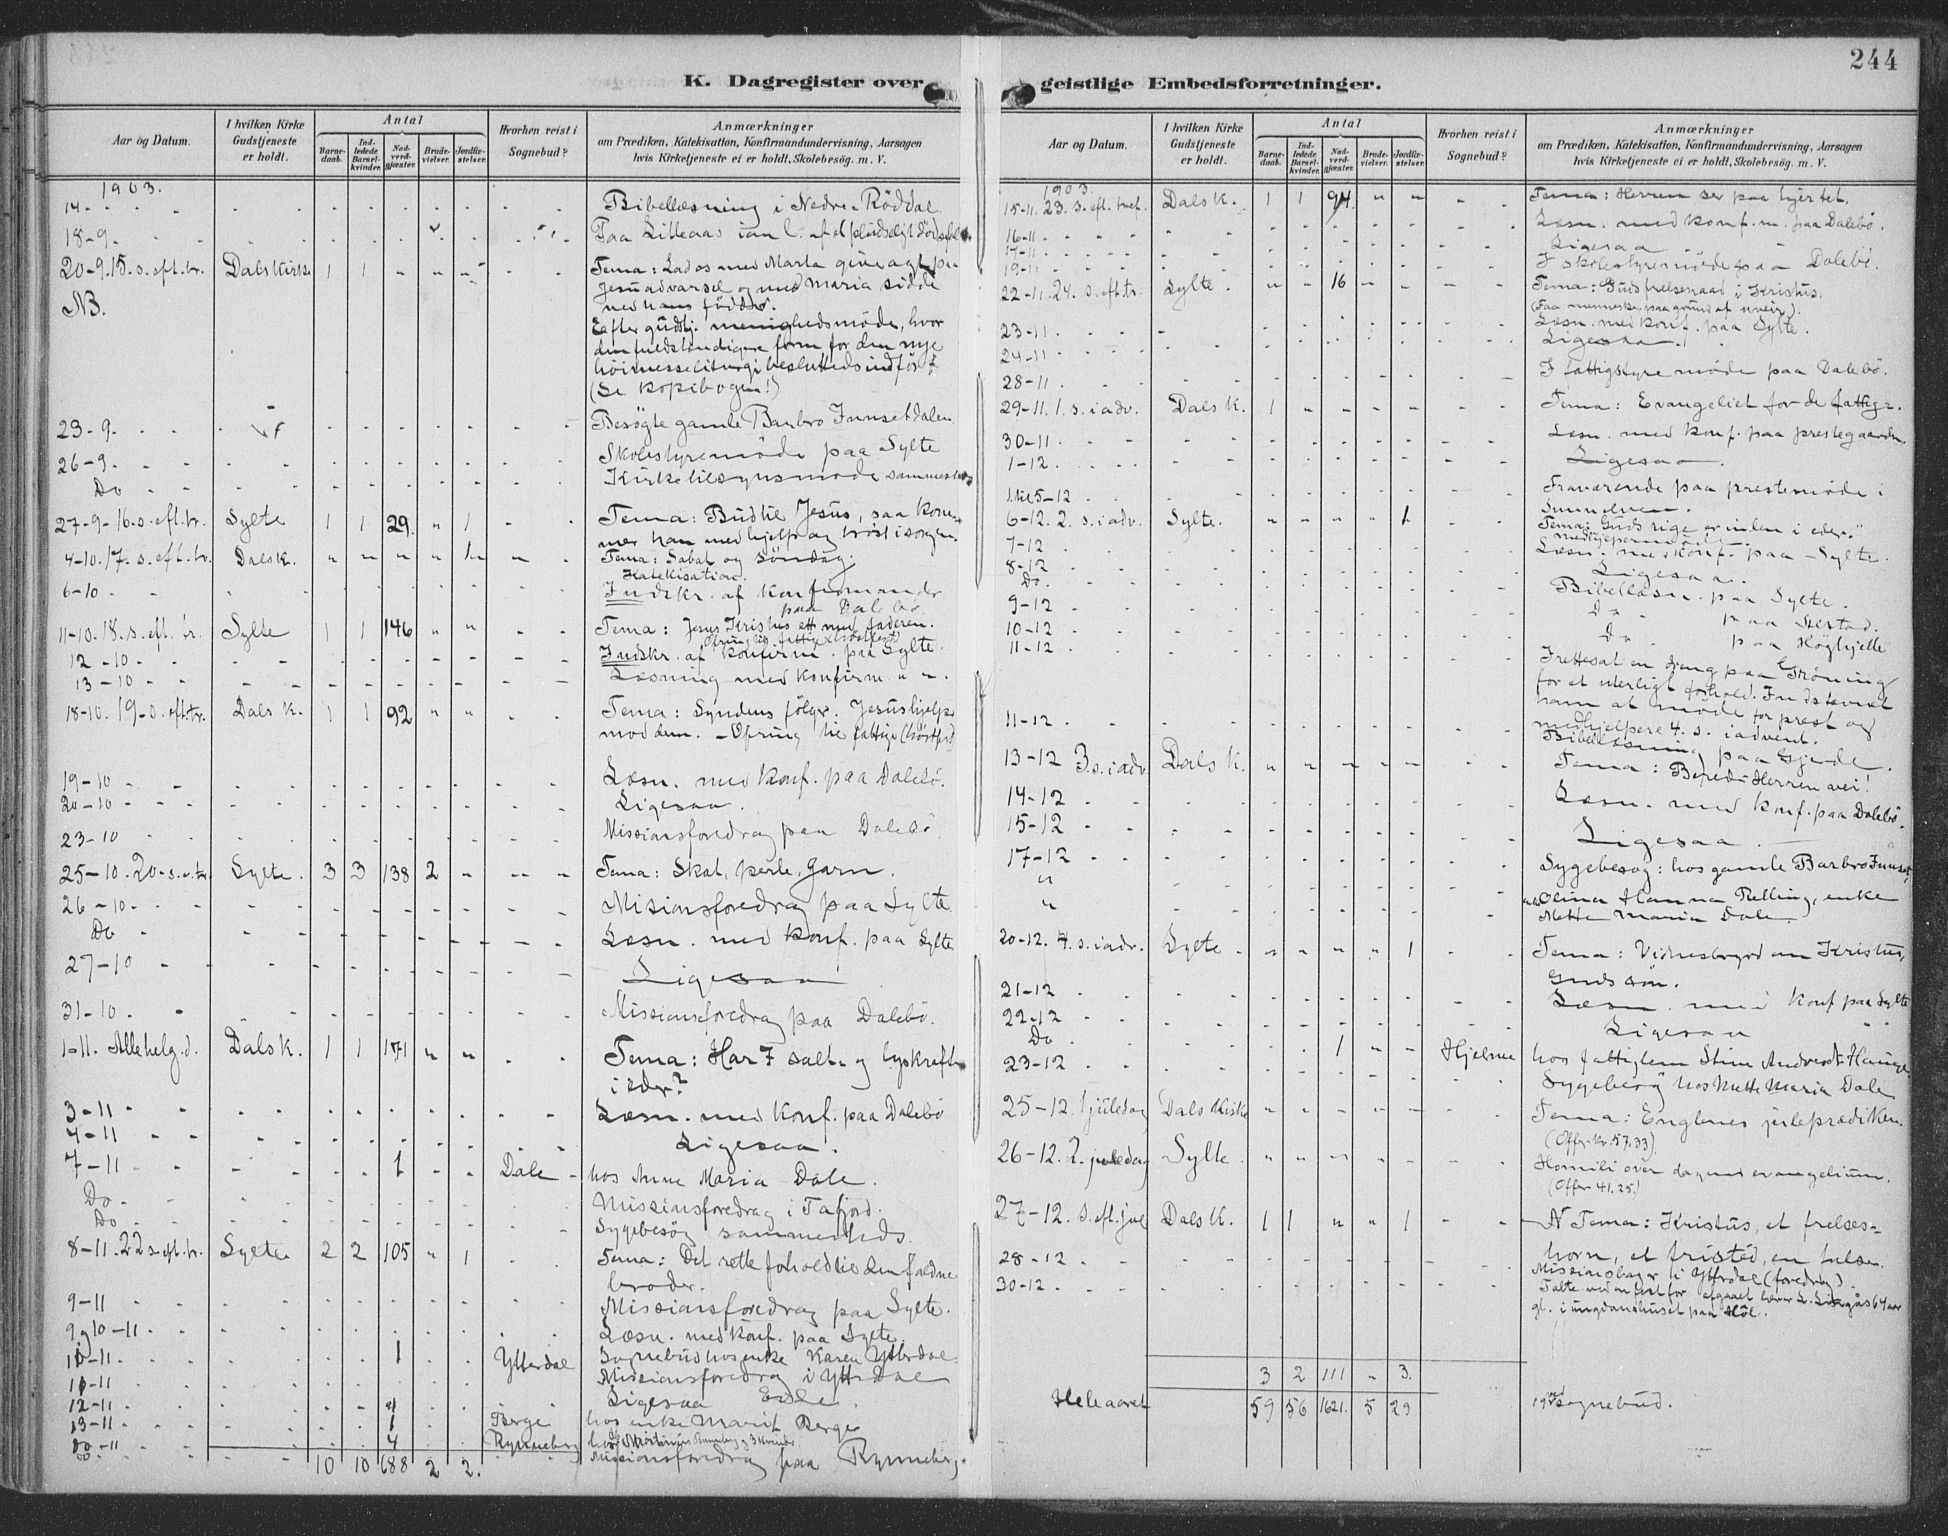 244
K. Dagregister over geistlige Embedsforretninger.
Aar og Datum.
I hvilken Kirke Gudstjeneste er holdt.
Antal
Barnedaab.
Indledede Barselkvinder.
Nadverdgjæster.
Brudevielser.
Jordfæstelser.
Hvorhen reist i Sognebud?
Anmærkninger
om Prædiken, Katekisation, Konfirmandundervisning, Aarsagen
hvis Kirketjeneste ei er holdt, Skolebesøg. m. V.
1903.
14- Bibellæsning i Nedre Röddal
18-9
20-9. 15. s. eft. tr. Dals Kirke 1 1 Tema: Lad os med Marta give agt paa
Jesu advarsel og med Maria sidde
ved hans födder.
NB. Efter gudstj. menighedsmöde, hvor
den fuldstændigere form for den nye
höimesseliturgi besluttedes indfört
(Se kopibogen!)
23-9 Besögte gamle Barbro Innsetdalen
26-9 Skolestyremöde paa Sylte
Do Kirketilsynsmöde sammesteds
27-9-16. s. eft. tr. Sylte 1 1 29 " 1 Tema: Bud til Jesus, saa kom-
mer han med hjelp og tröst i sorgen.
4-10. 17. s. eft. tr. Dals k. " " " " 1 Tema: Sabat og söndag.
Katekisation.
6-10 Indskr. af konfirmander
paa Dalebö.
11-10. 18. s. eft. tr. Sylte 1 1 146 " " Tema: Jesus Kristus ett med faderen.
12-10 Indskr. af konfirm. paa Sylte.
13-10 Læsning med konfirm. " ".
18-10. 19-s. eft. tr. Dals k. 1 1 92 " " Tema: Syndens fölger. Jesus hjelper
mod dem. - Ofring til fattige (höstfest)
19-10 Læsn. med konf. paa Dalebö.
20-10 Ligesaa.
23-10 Missionsforedrag paa Dalebö.
25-10. 20-s. e. tr. Sylte. 3 3 138 2 " Tema: Skat, perle, Garn.
26-10 Misionsforedrag paa Sylte
Do Læsn. med konf. paa Sylte
27-10 Ligesaa
31-10 Missionsforedrag paa Dalebö.
1-11. Allehelg. d. Dals k. 1 1 171 " " Tema: Har I salt- og lyskraften
i eder?
3-11 Læsn. med konf. paa Dalebö
4-11 Ligesaa.
7-11 1 Dale hos Anne Maria Dale.
Do Missionsforedrag i Tafjord.
Do Sygebesög sammesteds.
8-11. 22 s. eft. tr. Sylte 2 2 105 " 1 Tema: Det rette forhold til den faldne
broder.
9-11 Missionsforedrag paa Sylte.
9 og 10-11 Læsn. med konf. paa Sylte.
10-11 1 Ytterdal Sognebud hos enke Karen Ytterdal.
11-11 Missionsforedrag i Ytterdal
12-11 Ligesaa
13-11 1 Berge hos enke Marit Berge
Do-11 4 Rynneberg
Missionsforedrag paa Rynneberg.
10 10 688 2 2.
Aar og Datum.
I hvilken Kirke Gudstjeneste er holdt.
Antal
Barnedaab.
Indledede Barselkvinder.
Nadverdgjæster.
Brudevielser.
Jordfæstelser.
Hvorhen reist i Sognebud?
Anmærkninger
om Prædiken, Katekisation, Konfirmandundervisning, Aarsagen
hvis Kirketjeneste ei er holdt, Skolebesøg. m. V.
1903.
15-11. 23. s. eft. tref. Dals k. 1 1 94 " " Tema: Herren ser paa hjertet.
16-11 Læsn. med konf. m. paa Dalebö.
17-11 Ligesaa
19-11 I skolestyremöde paa Dalebö.
22-11. 24. s. eft. tr. Sylte. " " 16 " " Tema: Guds frelsesraad i Kristus.
(Faa mennesker paa grund af uveir).
23-11 Læsn. med konf. paa Sylte.
24-11 Ligesaa.
28-11 I fattigstyremöde paa Dalebö.
29-11. 1. s. i adv. Dals k. 1 Tema: Evangeliet for de fattige.
30-11 Læsn. med konf. paa prestegaarden
1-12 Ligesaa.
1 til 5-12 Fraværende paa prestemöde i
6-12. 2. s. i adv. Sylte. 1 Tema: Guds rige er inden i eder."
7-12 Læsn. med konf. paa Sylte.
8-12 Ligesaa.
Do Bibellæsn. paa Sylte.
9-12 Do paa
10-12 Do paa Höghjelle
11-12 Irettesat en dreng paa Gröning
for et uterligt forhold. Indstevnt
ham at möde for prest og
medhjelpere 4. s. i advent.
11-12 Bibellæsning paa Gjerde.
13-12 3. s. i adv. Dals k. Tema: Bered Herren vei!
14-12 Læsn. med konf. paa Dalebö.
15-12 Ligesaa
17-12 Sygebesög: hos gamle Barbro Innset,
" Olina Hanna Relling, enke
" Mette Maria Dale.
20-12. 4. s. i adv. Sylte 1 Tema: Vidnesbyrd om Kristus,
Guds sön.
21-12 Læsn. med konf paa Sylte
22-12 Ligesaa " "
Do 1 " " Hjelme hos fattiglem Stine Hauge.
23-12 Sygebesög hos Mette Maria Dale
25-12. 1 juledag Dals Kirke Tema: Englenes juleprædiken.
(Offer kr. 57.33)
26-12. 2. juledag Sylte Homili over dagens evangelium.
(Offer 41.25.)
27-12. s. eft. jul Dals k. 1 1 " " 1 Tema: Kristus, et frelses-
horn, et fristed, en
28-12 i Ytterdal (foredrag).
30-12
gl. i ungdomshuset paa
3 2 111 " 3.
Hele aaret 59 56 1621. 5 29 sognebud.